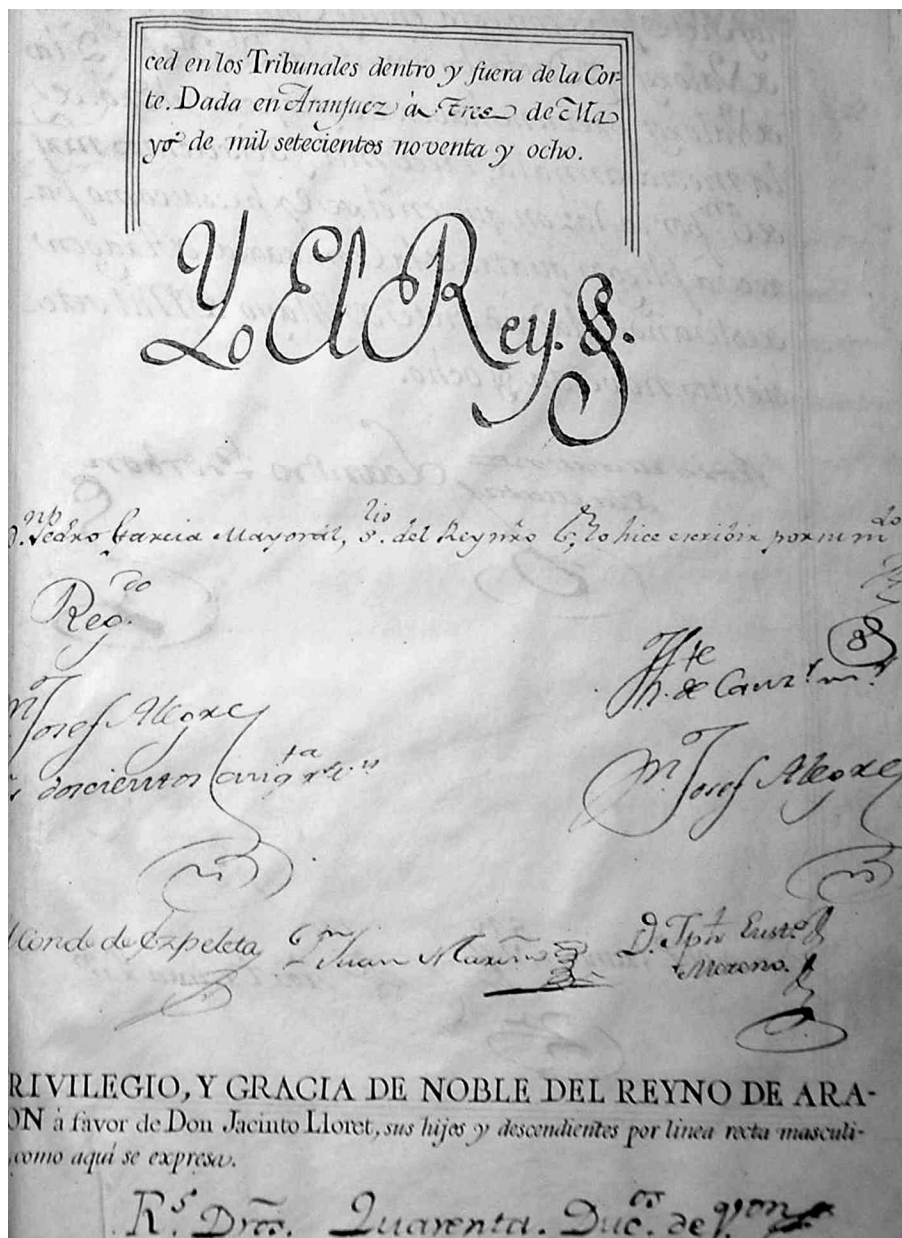 ced en los Tribunales dentro y fuera de la Cor-
te. Dada en Aranjuez à Tres de Ma
yo de mil setecientos noventa y ocho.
Yo El Rey.
Pedro Garcia Mayoral, S.rio del Rey nro S.r lo hice escribir por su m.do
Reg.do
M.n Josef Alegre
doscientos
th.te de Canz.r m.r
M.n Josef Alegre
Conde de Ezpeleta
Juan Mariño
D. Eust.o
Moreno.
RIVILEGIO, Y GRACIA DE NOBLE DEL REYNO DE ARA-
ON à favor de Don Jacinto Lloret, sus hijos y descendientes por linea recta masculi-
como aquí se expresa.
R.s Dros. Quarenta. Duc.os de V.on